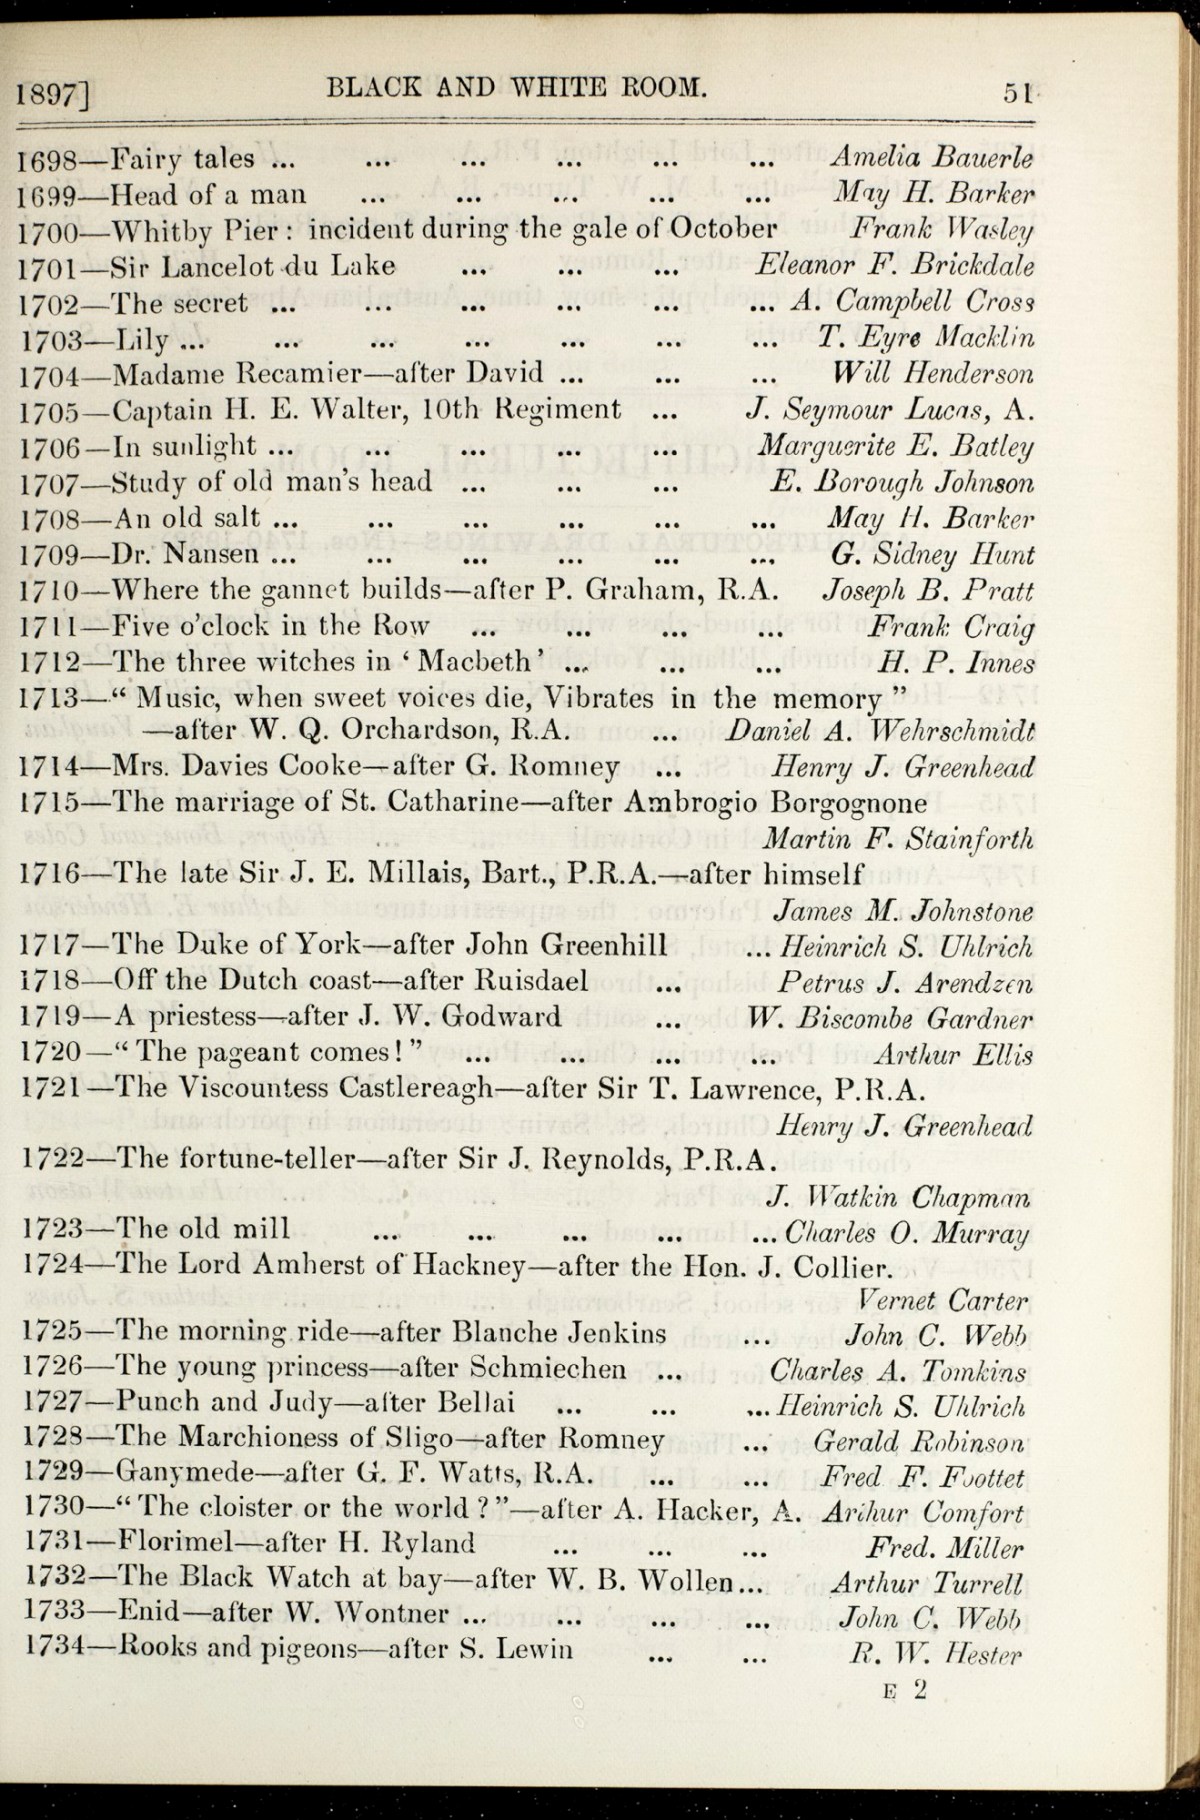 1897] BLACK AND WHITE ROOM. 51
1698—Fairy tales ... ... ... ... ... ... Amelia Bauerle
1699—Head of a man ... ... ... ... ... May H. Barker
1700—Whitby Pier : incident during the gale of October Frank Wasley
1701—Sir Lancelot du Lake ... ... ... Eleanor F. Brickdale
1702—The secret ... ... ... ... ... ... A. Campbell Cross
1703—Lily ... ... ... ... ... ... ... T. Eyre Macklin
1704—Madame Recamier—after David ... ... ... Will Henderson
1705—Captain H. E. Walter, 10th Regiment ... J. Seymour Lucas, A.
1706—In sunlight ... ... ... ... ... Marguerite E. Batley
1707—Study of old man's head ... ... ... E. Borough Johnson
1708—An old salt ... ... ... ... ... ... May H. Barker
1709—Dr. Nansen ... ... ... ... ... ... G. Sidney Hunt
1710—Where the gannet builds—after P. Graham, R.A. Joseph B. Pratt
1711—Five o'clock in the Row ... ... ... ... Frank Craig
1712—The three witches in ‘ Macbeth’ ... ... ... H. P. Innes
1713—“ Music, when sweet voices die, Vibrates in the memory ”
—after W. Q. Orchardson, R.A. ... Daniel A. Wehrschmidt
1714—Mrs. Davies Cooke—after G. Romney ... Henry J. Greenhead
1715—The marriage of St. Catharine—after Ambrogio Borgognone
Martin F. Stainforth
1716—The late Sir J. E. Millais, Bart., P.R.A.—after himself
James M. Johnstone
1717—The Duke of York—after John Greenhill ... Heinrich S. Uhlrich
1718—Off the Dutch coast—after Ruisdael ... Petrus J. Arendzen
1719—A priestess—after J. W. Godward ... W. Biscombe Gardner
1720—“ The pageant comes! ” ... ... ... ... Arthur Ellis
1721—The Viscountess Castlereagh—after Sir T. Lawrence, P.R.A.
Henry J. Greenhead
1722—The fortune-teller—after Sir J. Reynolds, P.R.A.
J. Watkin Chapman
1723—The old mill ... ... ... ... ... Charles O. Murray
1724—The Lord Amherst of Hackney—after the Hon. J. Collier.
Vernet Carter
1725—The morning ride—after Blanche Jenkins ... John C. Webb
1726—The young princess—after Schmiechen ... Charles A. Tomkins
1727—Punch and Judy—after Bellai ... ... ... Heinrich S. Uhlrich
1728—The Marchioness of Sligo—after Romney ... Gerald Robinson
1729—Ganymede—after G. F. Watts, R.A. ... ... Fred F. Foottet
1730—“ The cloister or the world ? ”—after A. Hacker, A. Arthur Comfort
1731—Florimel—after H. Ryland ... ... ... Fred. Miller
1732—The Black Watch at bay—after W. B. Wollen ... Arthur Turrell
1733—Enid—after W. Wontner ... ... ... ... John C. Webb
1734—Rooks and pigeons—after S. Lewin ... ... R. W. Hester
E 2